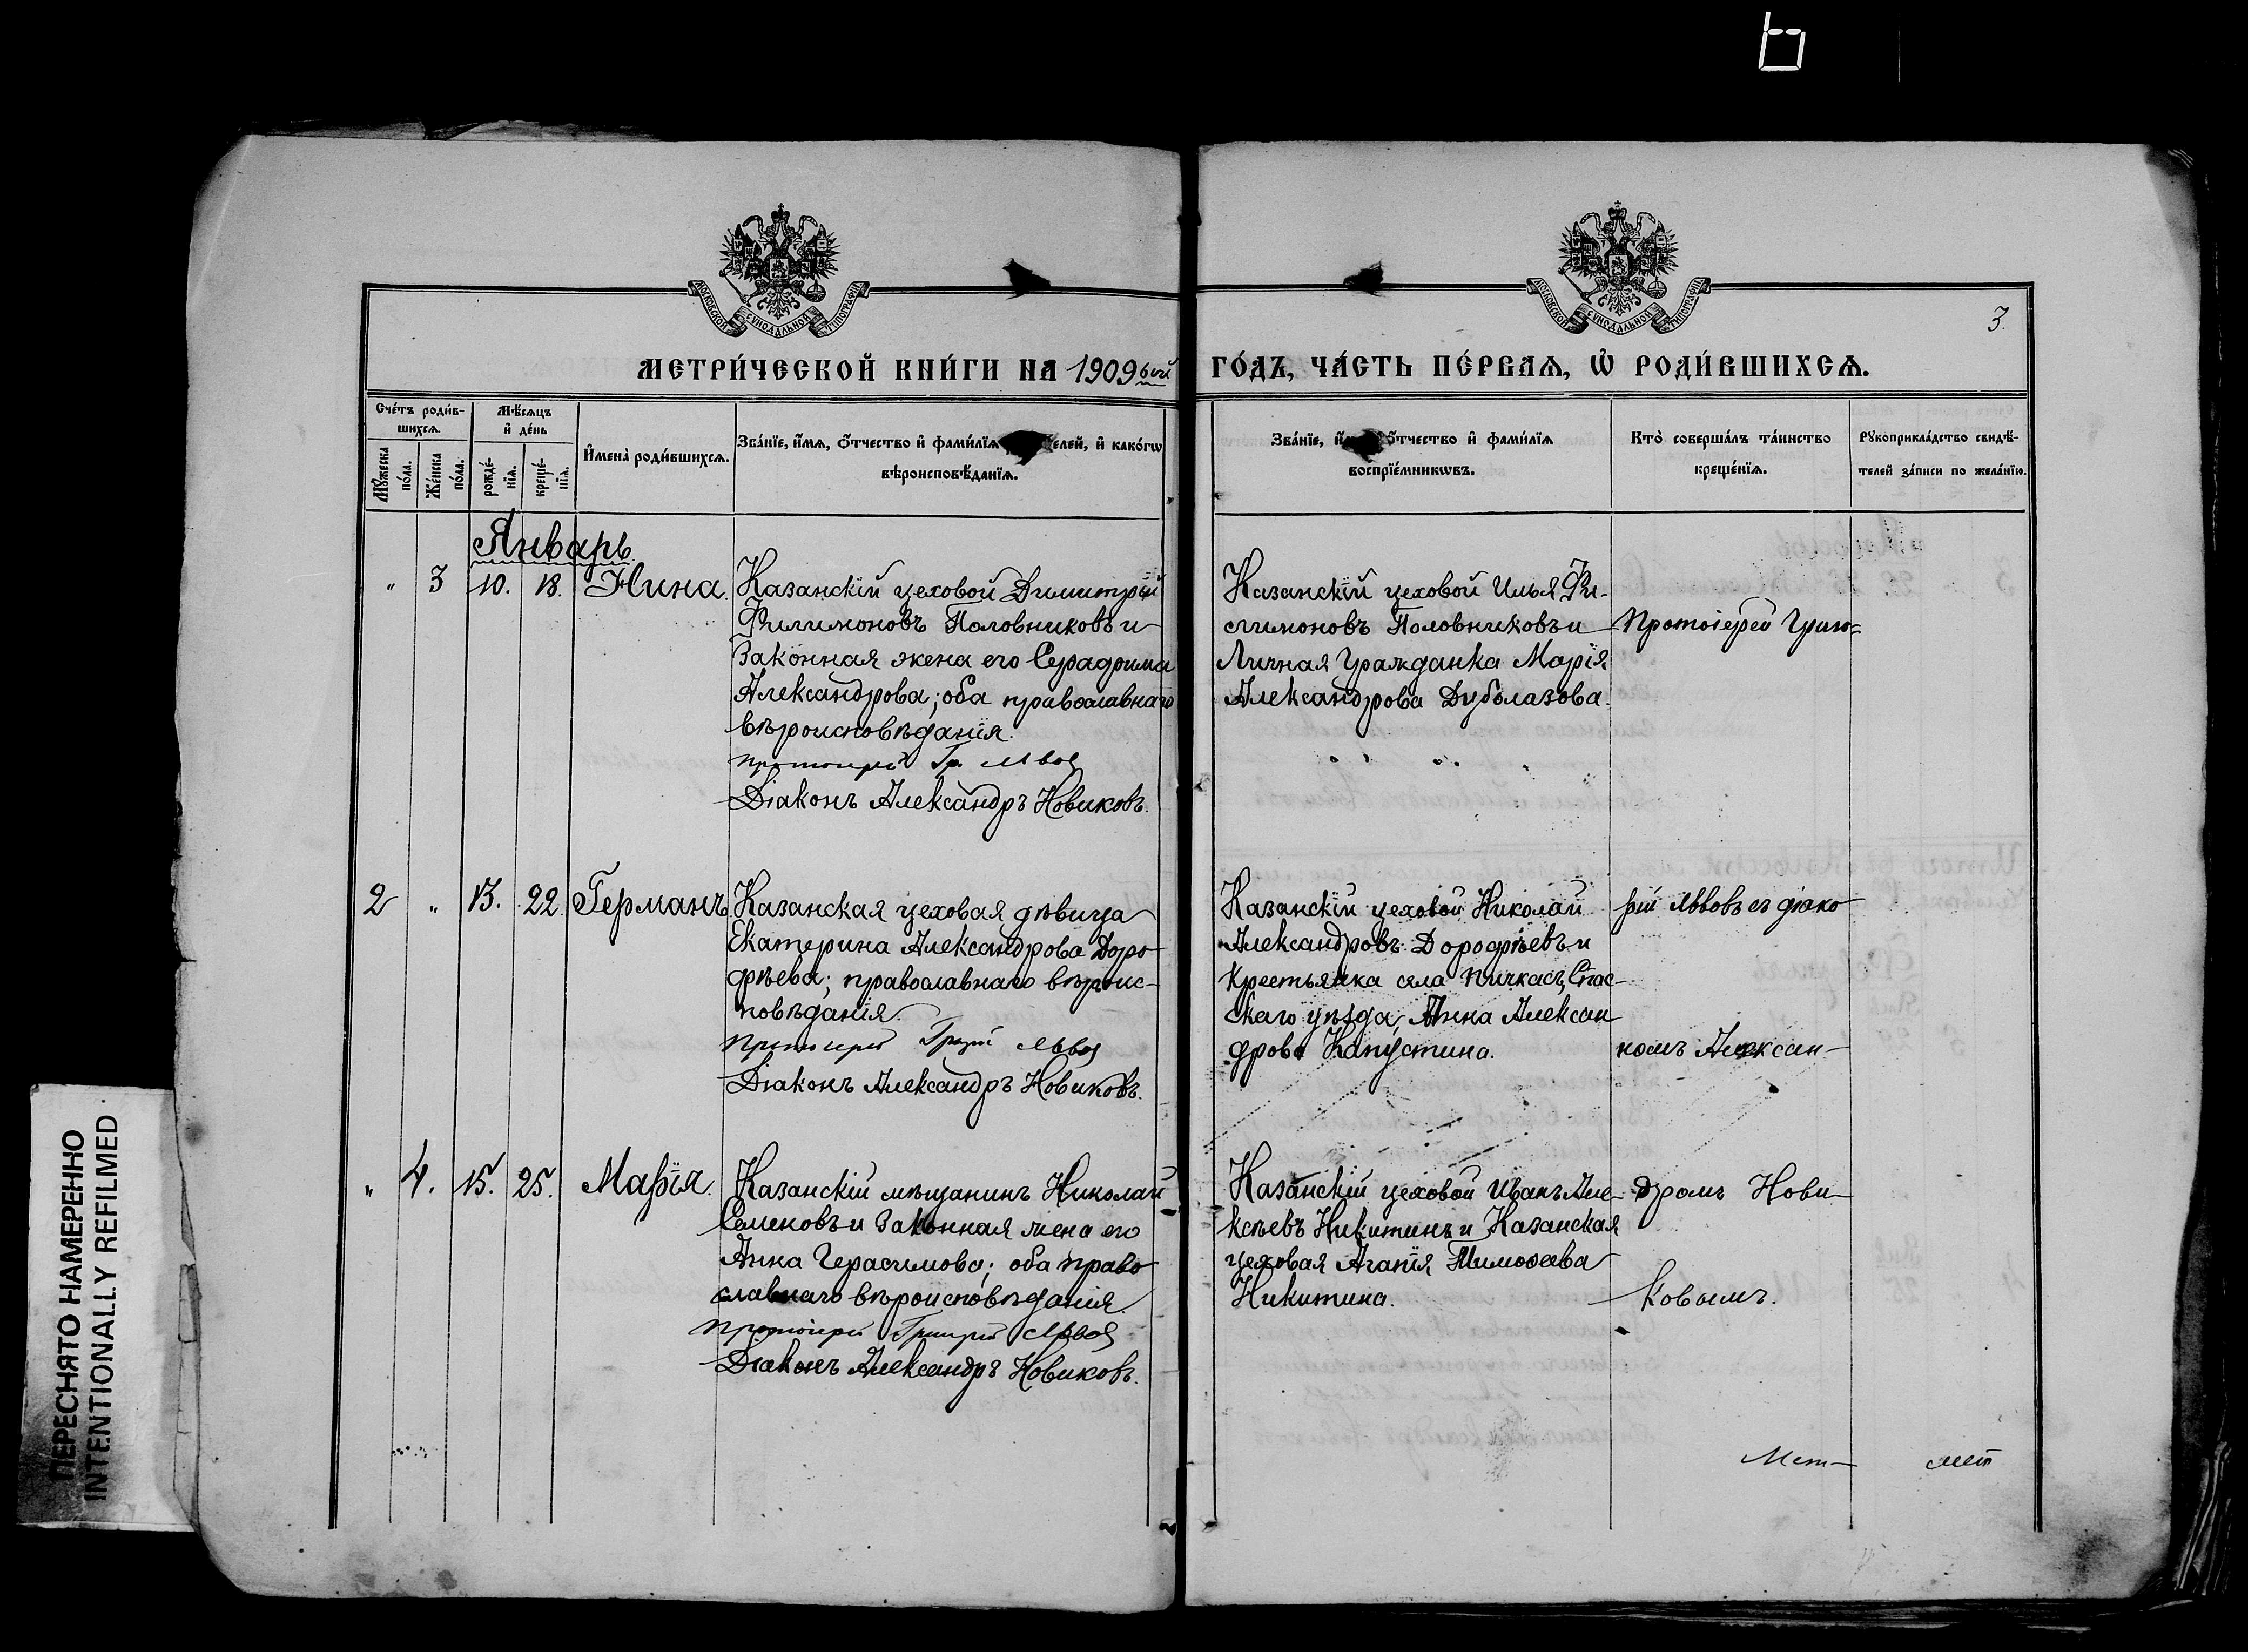 3.
МЕТРИ́ЧЕСКОЙ КНИ́ГИ НА 1909ый ГО́ДЪ, ЧА́СТЬ ПЕ́РВАѦ, Ѽ РОДИ́ВШИХСѦ.
Сче́тъ роди́в-
шихсѧ.
Мꙋ́жеска
по́ла.
Же́нска
по́ла.
Мѣ́сѧцъ
и҆ де́нь
рожде́-
нїѧ.
креще́-
нїѧ.
И҆мена̀ роди́вшихсѧ.
Зва́нїе, и҆́мѧ, ѻ҆́тчество и҆ фами́лїѧ елей, и҆ како́гѡ
вѣроисповѣ́данїѧ.
Зва́нїе, ѻ҆́тчество и҆ фами́лїѧ
воспрїе́мникѡвъ.
Кто̀ соверша́лъ та́инство
креще́нїѧ.
Рꙋкоприкла́дство свидѣ́-
телей за́писи по жела́нїю.
Январь.
" 3 10. 18. Нина.
Казанскій цеховой Димитрій
Филимоновъ Половниковъ и
Законная жена его Серафима
Александрова; оба православнаго
вѣроисповѣданія.
протоіерей Гр. Львов
Діаконъ Александръ Новиковъ.
Казанскій цеховой Илья Фи-
лимоновъ Половниковъ и
Личная Гражданка Марія
Александрова Дуболазова.
Протоіерей Григо=
2 " 13. 22. Германъ.
Казанская цеховая дѣвица
Екатерина Александрова Доро-
фѣева; православнаго вѣроис-
повѣданія.
Протоіерей Григрій Львов
Діаконъ Александръ Новиковъ.
Казанскій цеховой Николай
Александровъ Дорофѣевъ и
Крестьянка села Пичкасъ, Спас-
скаго уѣзда, Анна Алексан
дрова Капустина.
рій Львовъ съ діако
номъ Алексан-
" 4. 15. 25. Марія.
Казанскій мѣщанинъ Николай
Семеновъ и Законная жена его
Анна Герасимова; оба право
славнаго вѣроисповѣданія.
Протоіерей Григрій Львов
Діаконъ Александръ Новиковъ.
Казанскій цеховой Иванъ Але-
ксѣевъ Никитинъ и Казанская
цеховая Агапія Тимоѳеева
Никитина.
дромъ Нови-
ковымъ.
ПЕРЕСНЯТО НАМЕРЕННО
INTENTIONALLY REFILMED
МОСКОВСКОЙ СѴНОДАЛЬНОЙ ТИПОГРАФІИ
МОСКОВСКОЙ СѴНОДАЛЬНОЙ ТИПОГРАФІИ